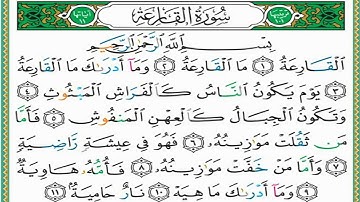 سُورَةُ القَارِعَة
بِسْمِ اللَّهِ الرَّحْمَٰنِ الرَّحِيمِ
الْقَارِعَةُ ١ مَا الْقَارِعَةُ ٢ وَمَا أَدْرَاكَ مَا الْقَارِعَةُ
٣ يَوْمَ يَكُونُ النَّاسُ كَالْفَرَاشِ الْمَبْثُوثِ ٤
وَتَكُونُ الْجِبَالُ كَالْعِهْنِ الْمَنفُوشِ ٥ فَأَمَّا
مَن ثَقُلَتْ مَوَازِينُهُ ٦ فَهُوَ فِي عِيشَةٍ رَّاضِيَةٍ
٧ وَأَمَّا مَنْ خَفَّتْ مَوَازِينُهُ ٨ فَأُمُّهُ هَاوِيَةٌ
٩ وَمَا أَدْرَاكَ مَا هِيَهْ ١٠ نَارٌ حَامِيَةٌ ١١